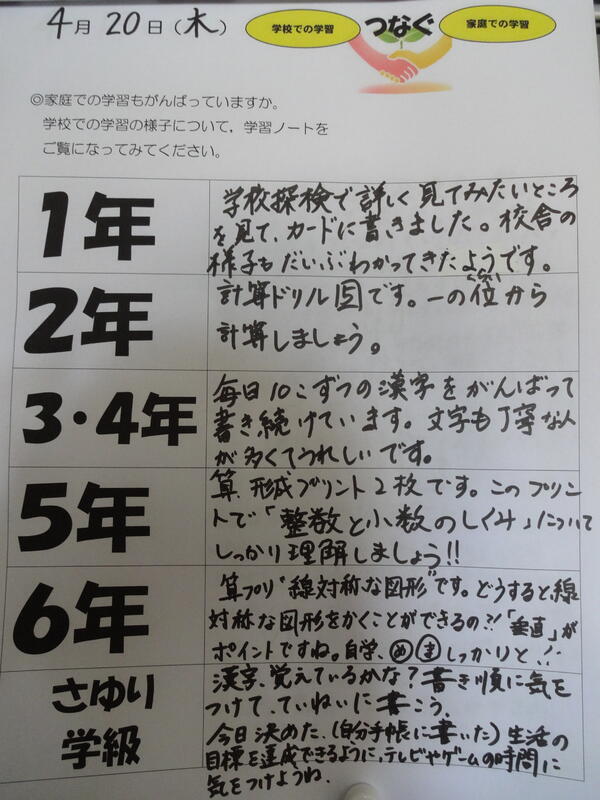 4月20日(木)
学校での学習 つなぐ 家庭での学習
◎家庭での学習もがんばっていますか。
学校での学習の様子について，学習ノートを
ご覧になってみてください。
1年
学校探検で詳しく見てみたいところ
を見て、カードに書きました。校舎の
様子もだいぶわかってきたようです。
2年
計算ドリル⑤です。一の位から
くらい
計算しましょう。
3・4年
毎日10こずつの漢字をがんばって
書き続けています。文字も丁寧な人
が多くてうれしいです。
5年
算形成プリント2枚です。このプリン
トで「整数と小数のしくみ」について
しっかり理解しましょう!!
6年
算プリ"線対称な図形"です。どうすると、線
対称な図形をかくことができるの?!「垂直」が
ポイントですね。自学、㋱㋮しっかりと!!
さゆり
学級
漢字、覚えているかな?書き順に気を
つけて、ていねいに書こう。
今日決めた、(自分手帳に書いた)生活の
目標を達成できるように、テレビやゲームの時間に
気をつけようね.